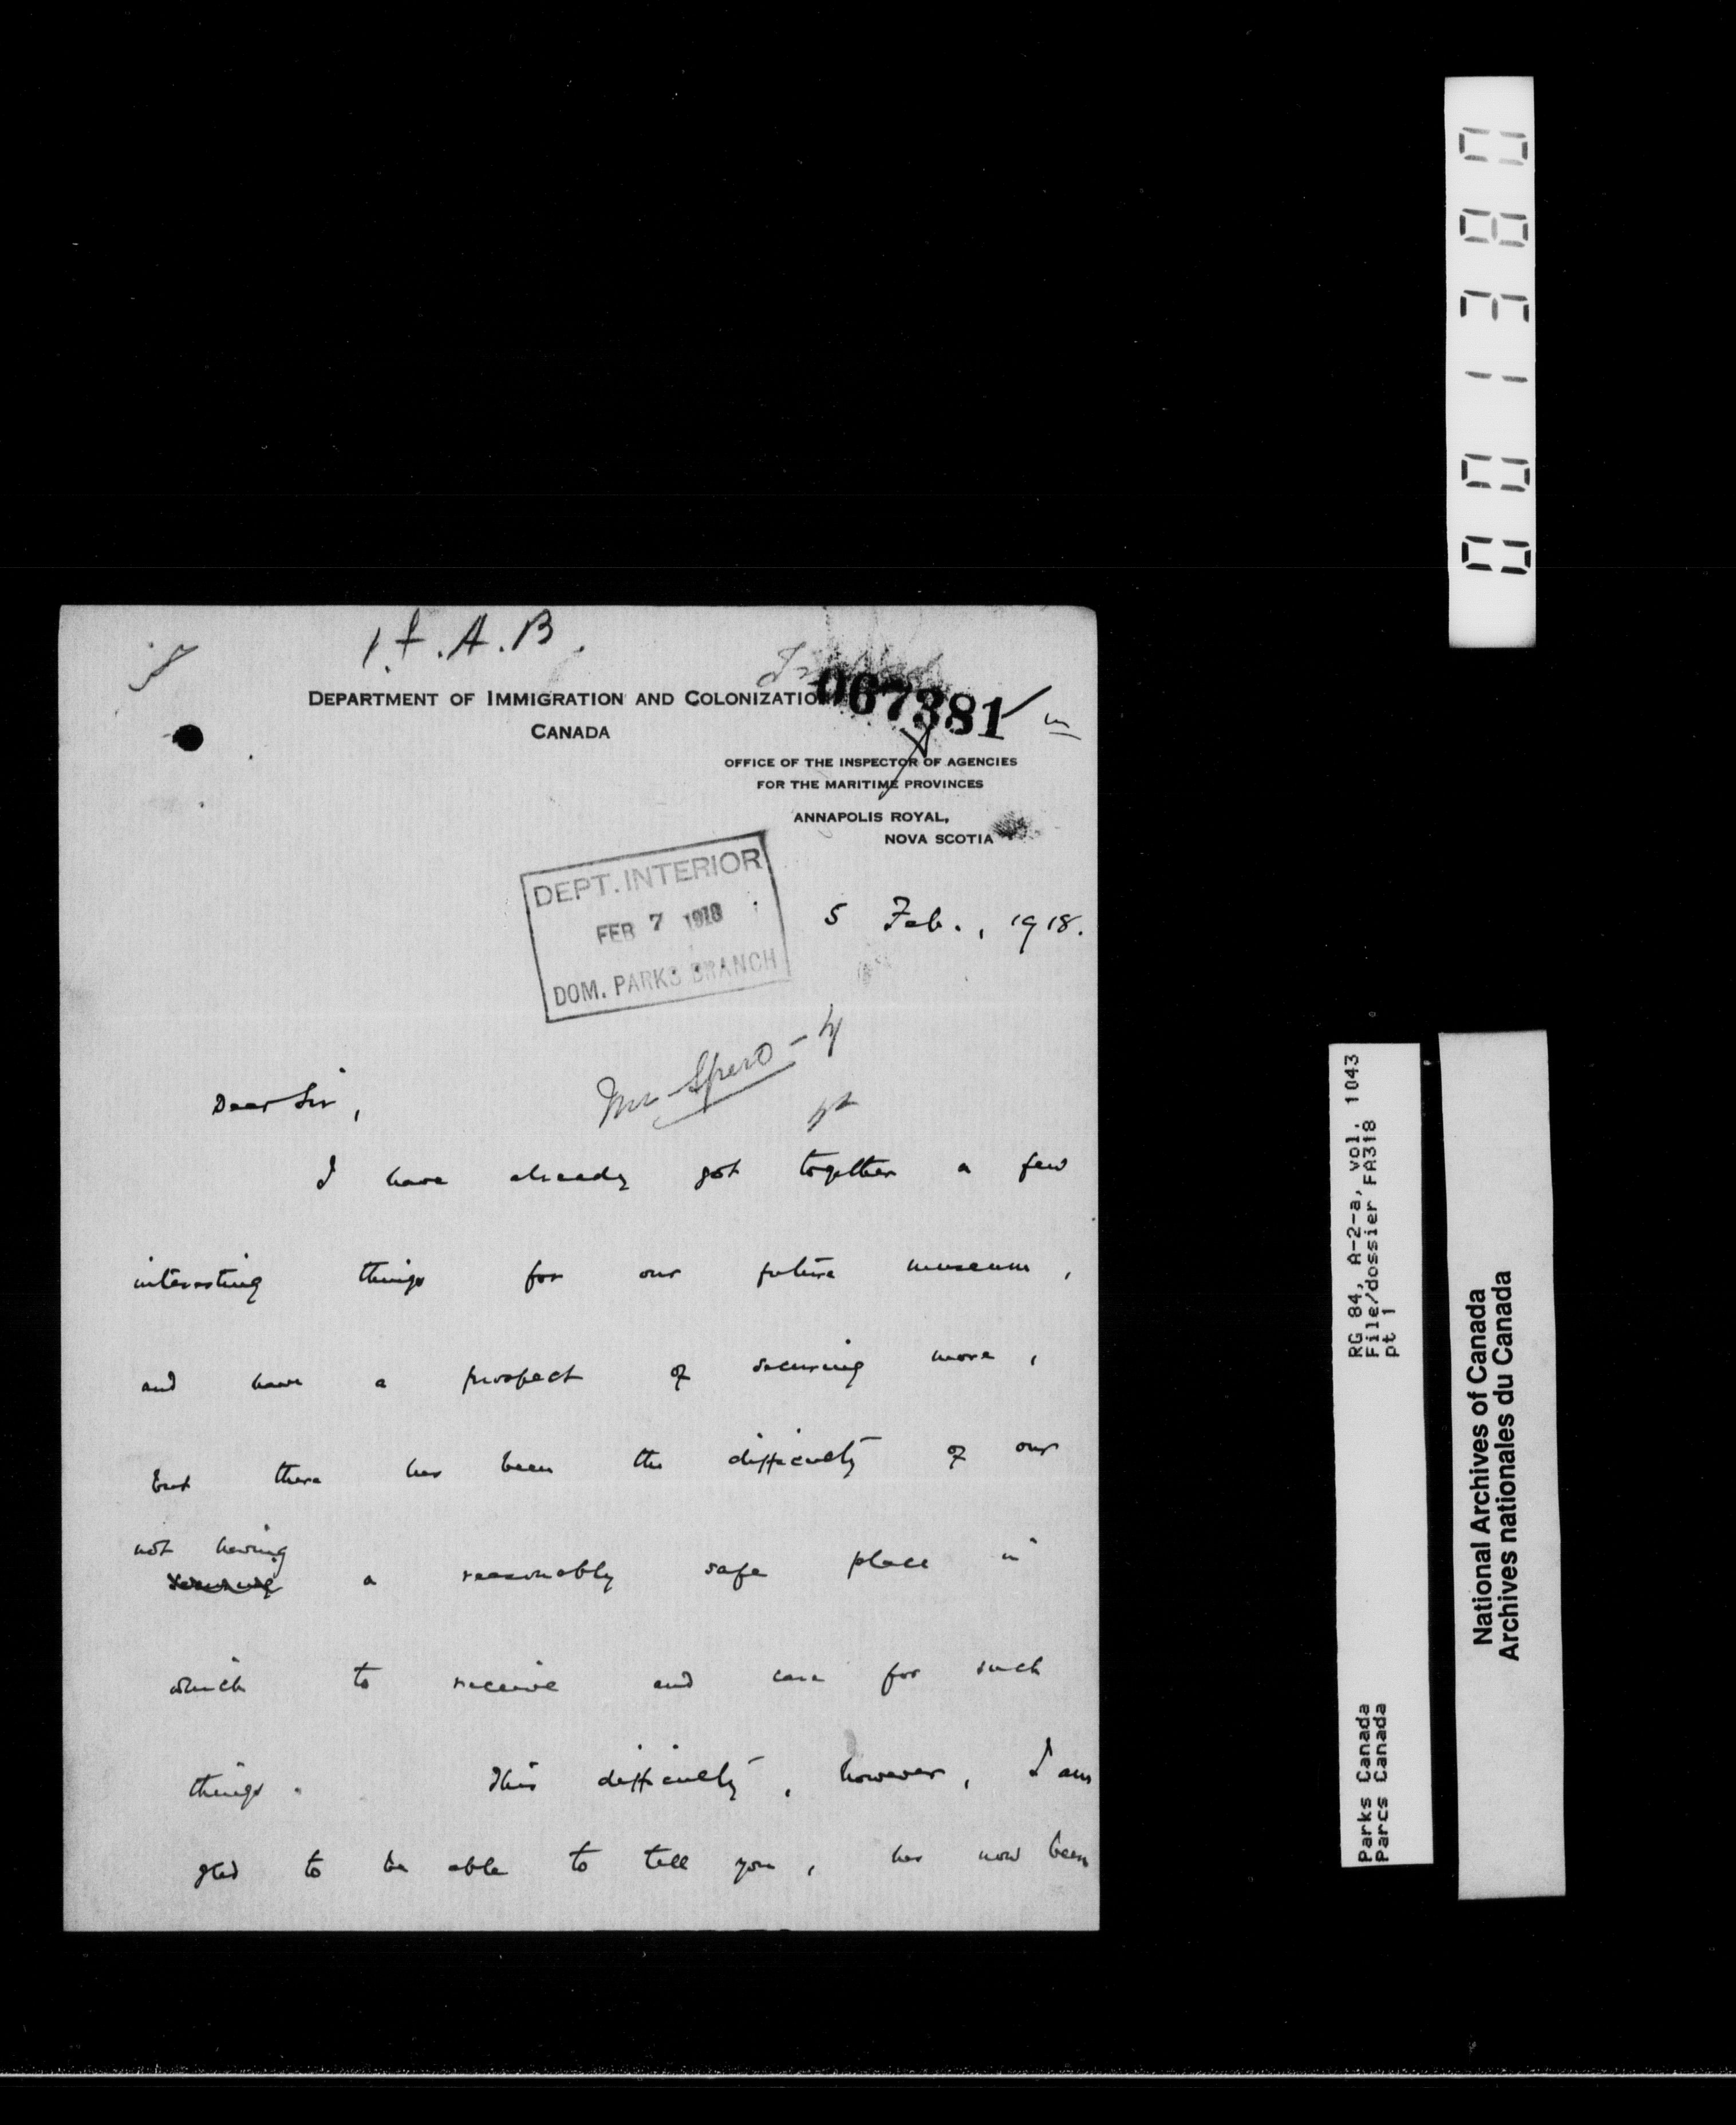 1.f.A.B.
067381
DEPARTMENT OF IMMIGRATION AND COLONIZATION
CANADA
OFFICE OF THE INSPECTOR OF AGENCIES
FOR THE MARITIME PROVINCES
ANNAPOLIS ROYAL,
NOVA SCOTIA
DEPT. INTERIOR
FEB 7 1918
DOM. PARKS BRANCH
5 Feb., 1918.
Mr Spero - 4
Dear Sir,
I have already got together a few
interesting things for our future museum,
and have a prospect of securing more,
but there has been the difficulty of our
not having
securing a reasonably safe place in
which to receive and care for such
things. This difficulty, however, I am
glad to be able to tell you, has now been
001380
RG 84, A-2-a, vol. 1043
File/dossier FA318
pt 1
Parks Canada
Parcs Canada
National Archives of Canada
Archives nationales du Canada